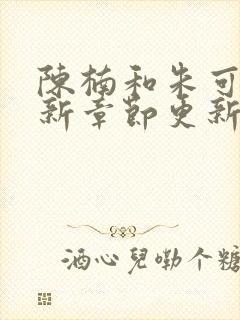 陳楠和朱可
新章節更新
酒心兒嘞个糖